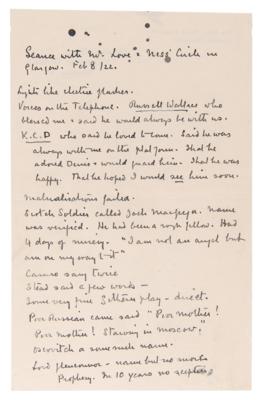 Seance with Mr Love & Ness' Circle in
Glasgow. Feb 8/22.
Lights like electric flashes.
Voices on the Telephone. Russell Wallace who
blessed me & said he would always be with us.
K.C.D who said he loved to come. Said he was
always with me on the platform. That he
adored Denis & would guard him. That he was
happy. That he hoped I would see him soon.
Materialisations failed.
Scotch Soldier called Jack Macgregor. Name
was verified. He had been a rough fellow. Had
4 days of misery. "I am not an angel but
am on my way to it"
Caruso sang twice
Stead said a few words –
Some very fine Zither play – direct.
Poor Russian came said "Poor Mother!
Poor Mother! Starving in Moscow."
or some such name.
Lord Glenconnor – name but no words
Prophecy. In 10 years no sceptics